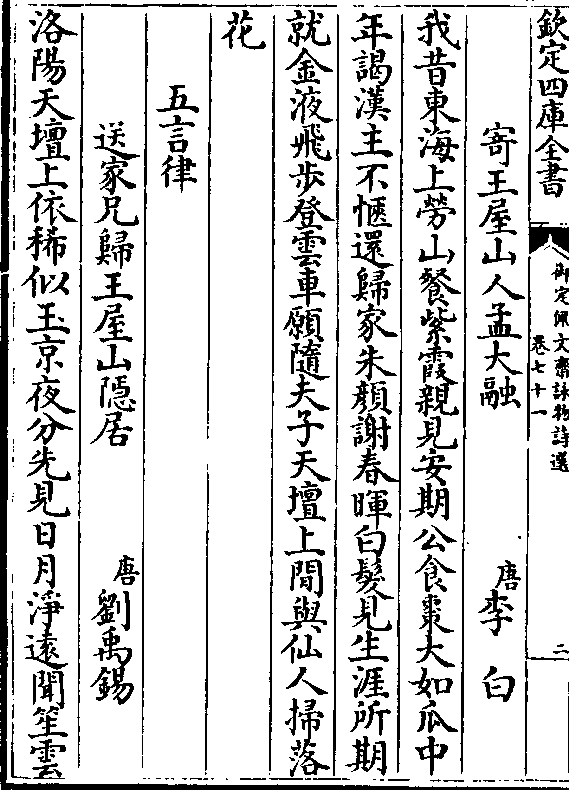 欽定四庫全書
御定佩文齋詠物詩選
卷七十一
二
寄王屋山人孟大融
唐李白
我昔東海上勞山餐紫霞親見安期公食棗大如瓜中
年謁漢主不愜還歸家朱顏謝春暉白髮見生涯所期
就金液飛步登雲車願隨夫子天壇上閒與仙人掃落
花
五言律
送家兄歸王屋山隱居
唐劉禹錫
洛陽天壇上依稀似玉京夜分先見日月淨遠聞笙雲